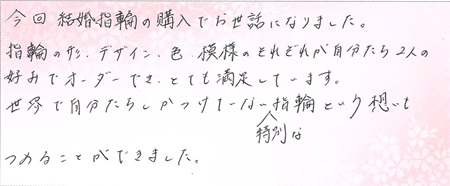 今回 結婚指輪の購入でお世話になりました。
指輪の形、デザイン、色、模様のそれぞれが自分たち2人の
好みでオーダーでき、とても満足しています。
世界で自分たちしかつけていない指輪という想いも
特別な
つめることができました。